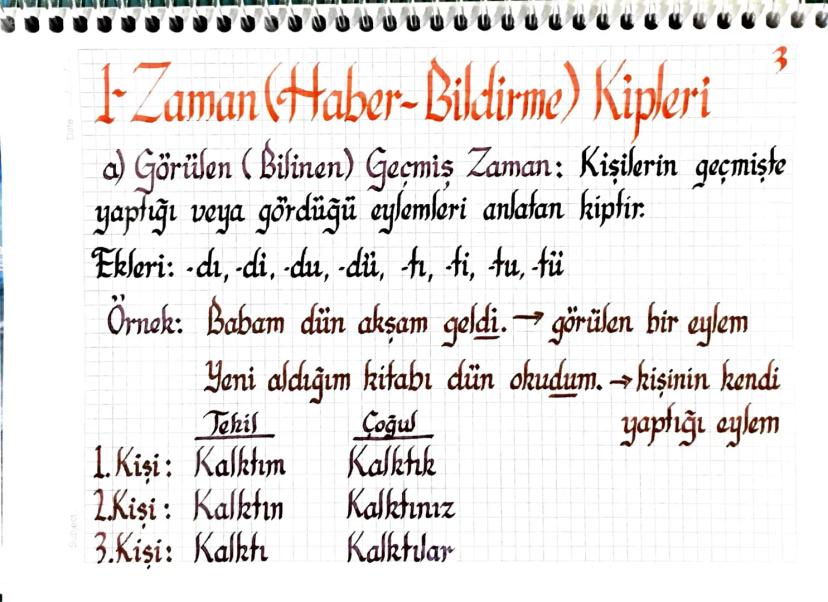 3
1- Zaman (Haber-Bildirme) Kipleri
a) Görülen (Bilinen) Geçmiş Zaman: Kişilerin geçmişte
yaptığı veya gördüğü eylemleri anlatan kiptir.
Ekleri: -dı, -di, -du, -dü, -tı, -ti, -tu, -tü
Örnek: Babam dün akşam geldi. → görülen bir eylem
Yeni aldığım kitabı dün okudum. → kişinin kendi
yaptığı eylem
Tekil Çoğul
1. Kişi: Kalktım Kalktık
2. Kişi: Kalktın Kalktınız
3. Kişi: Kalktı Kalktılar
Date
Subject